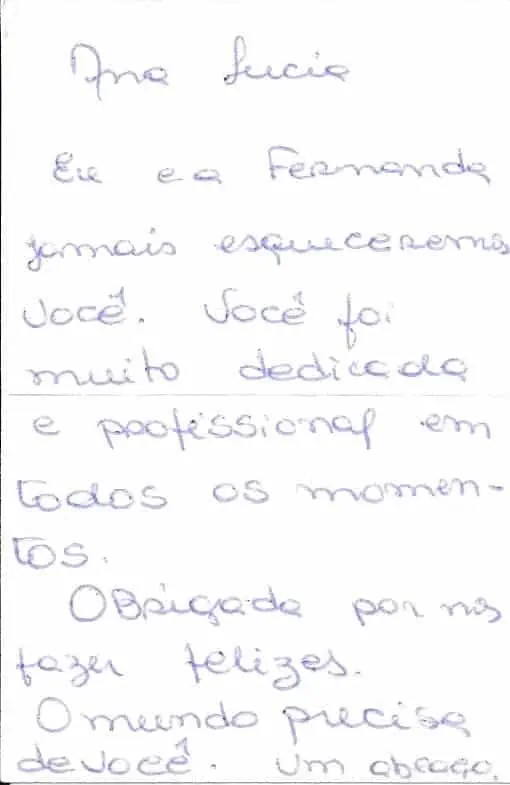 Ana Lucia
Eu e a Fernanda
jamais esqueceremos
você. Você foi
muito dedicada
e profissional em
todos os momen-
tos.
Obrigada por nos
fazer felizes.
O mundo precisa
de você. Um abraço.